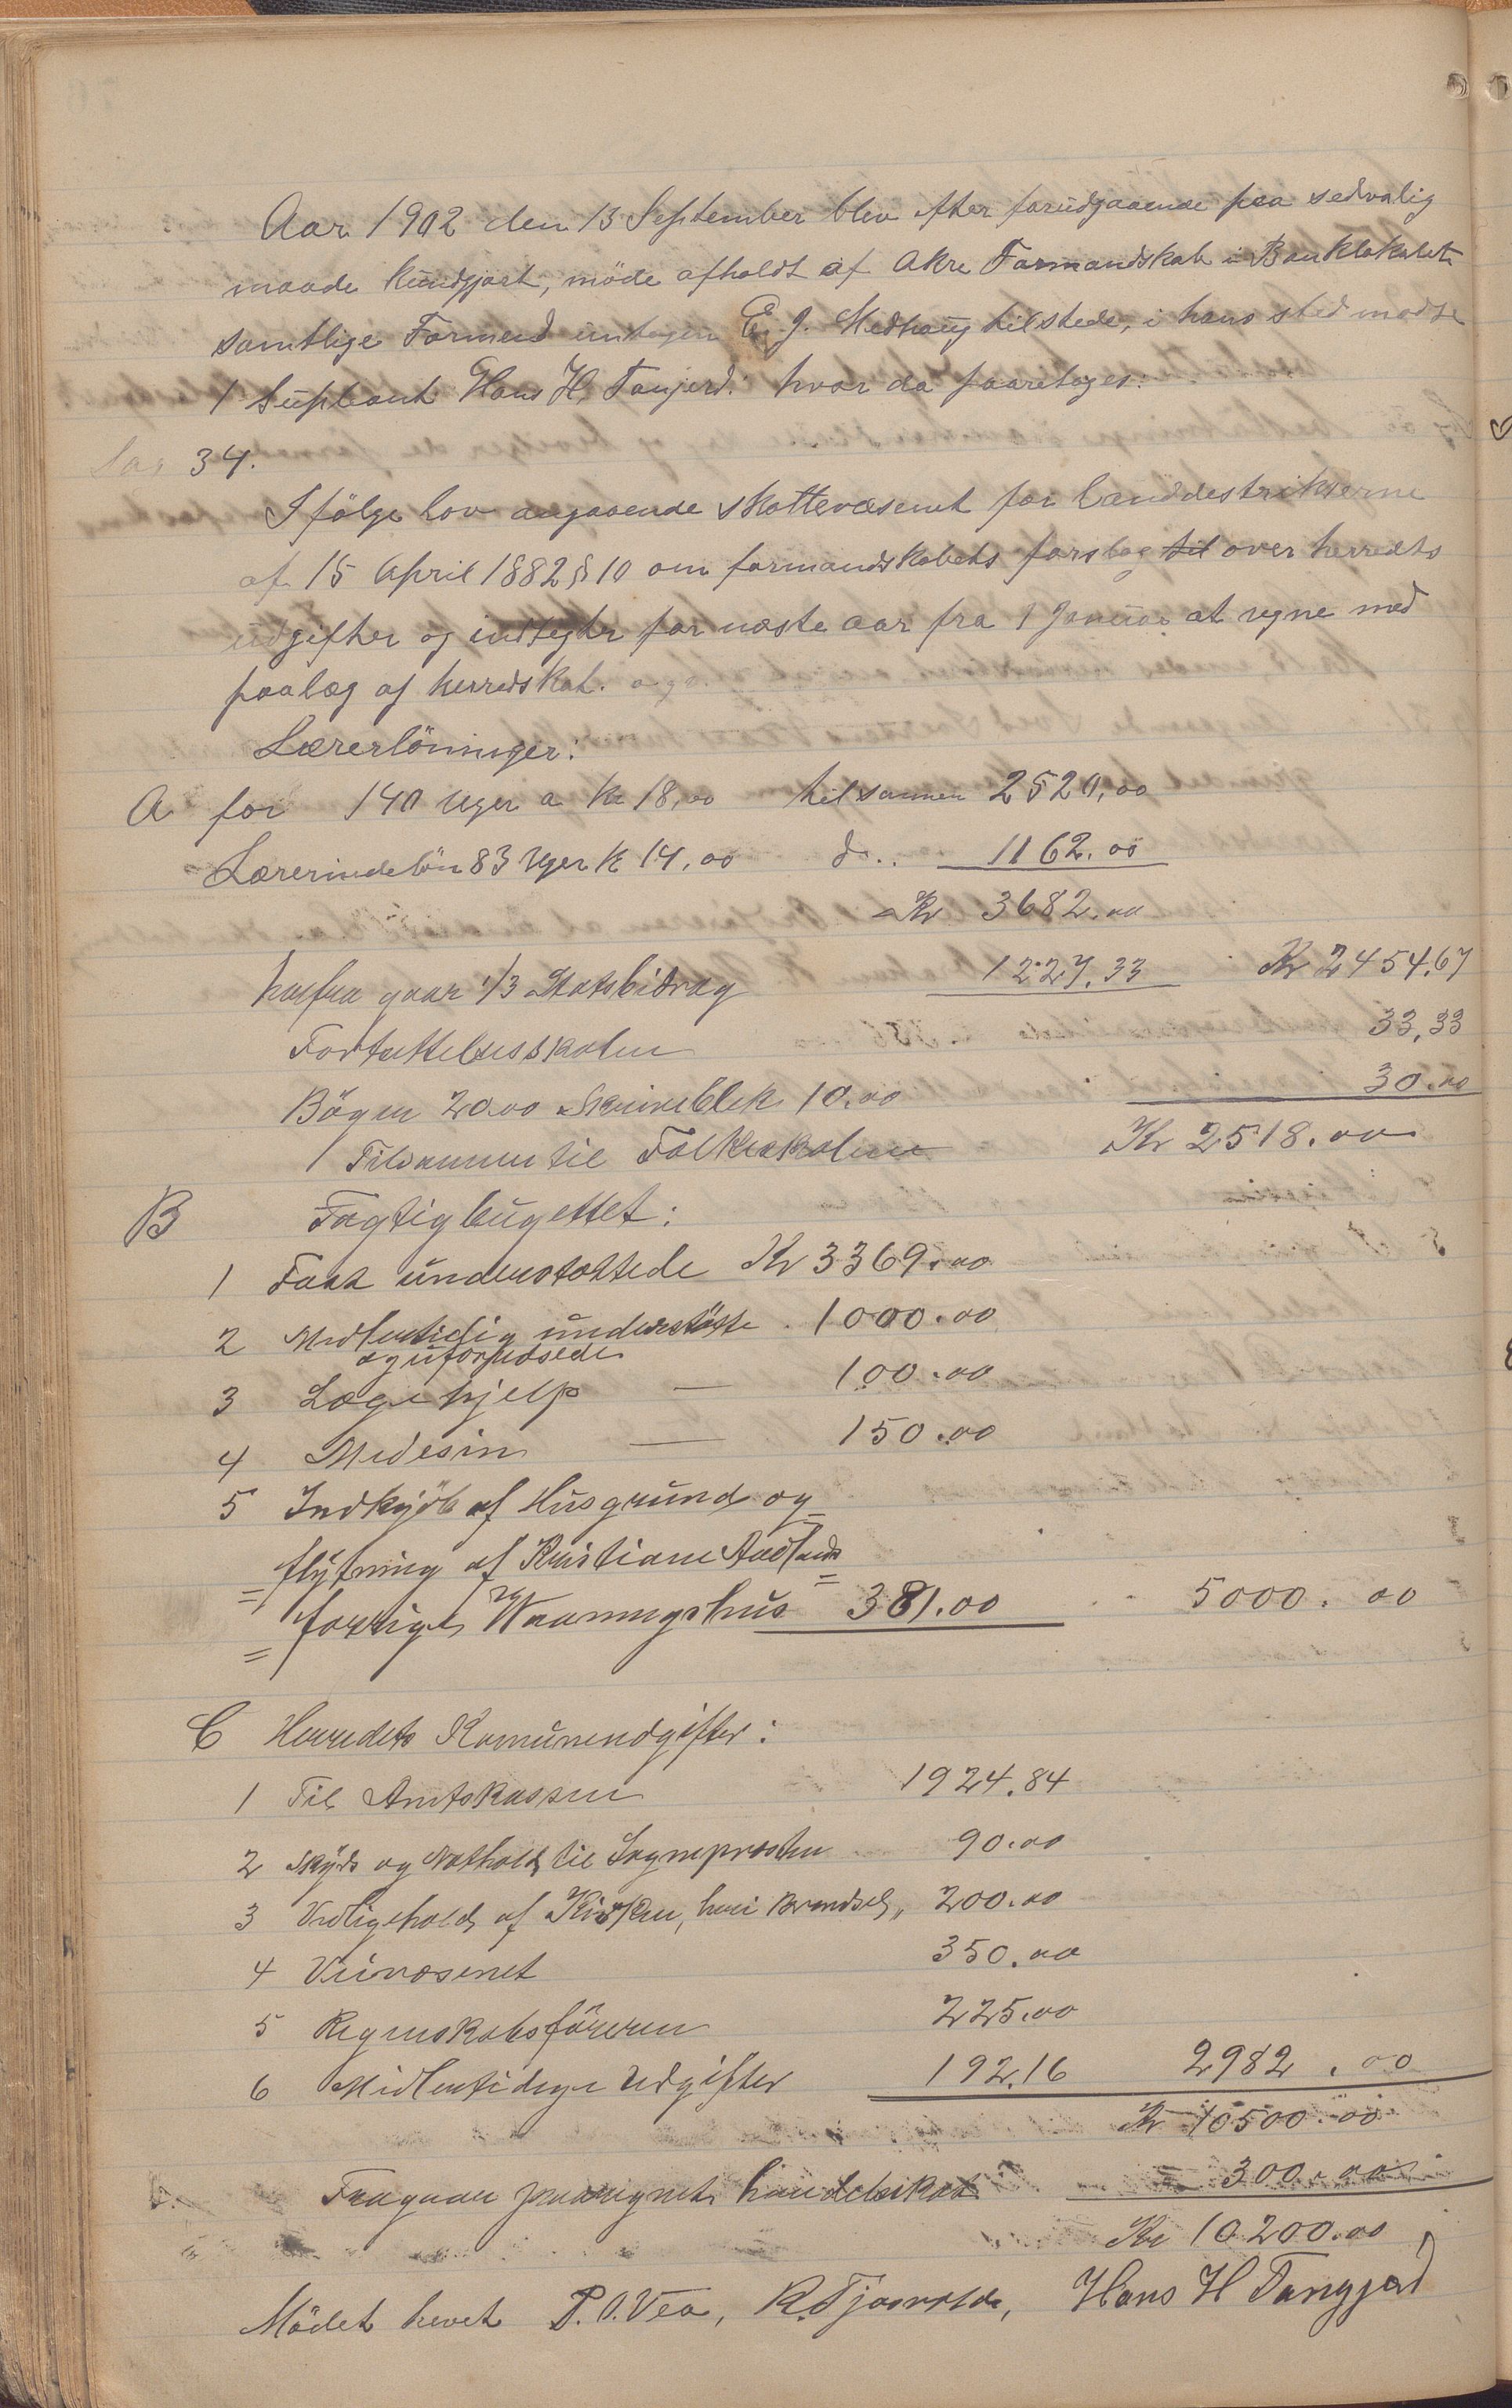 Aar 1902 den 13 September blev efter forudgaaende paa sedvalig
maade kundgjort, möde afholdt af Akre Formandskab i Banklokalet
samtlige Formend undtagen E. J. Medhaug tilstede, i hans sted mødte
1 Supleant Hans H. Tangjerd. hvor da foaretoges:
Sag 34.
Ifölge lov angaaende skattevæsenet for landdestrikterne
af 15 April 1882 § 10 om formandskabets forslag til over herredts
udgifter og indtegter for næste aar fra 1 Januar at regne med
paalæg af herredskat.
Lærerlönninger:
A for 140 Uger a Kr 18,00 tilsammen 2520,00
Lærerindelön 83 Uger Kr 14,00 do.. 1162.00
Kr 3682.00
herfra gaar 1/3 Statsbidrag 1227.33 Kr 2454.67
Fortsettelsesskolen 33,33
Böger 20.00 Skriveblek 10.00 30.00
Tilsammen til Folkeskolen Kr 2518.00
B Fagtigbugettet:
1 Fast understøttede Kr 3369.00
2 Midlertidig understöttte 1000.00
og uforudsede
3 Lægehjelp — 100.00
4 Medesin — 150.00
5 Indkjöb af Husgrund og
flytning af Kristiane Aadlands
forrige Waaningshus 381.00 5000.00
C Herredets Komuneudgifter:
1 Til Amtskassen 1924.84
2 Skyds og Nathold til Sogneprosten 90.00
3 Vedligehold af Kirken, heri Brendsel, 200.00
4 Veivæsenet 350.00
5 Regnskabsföreren 225.00
6 Midlertidige Udgifter 192.16 2982.00
Kr 10500.00
Fragaar paaregnet handelskat 300.00
Kr 10200.00
Mödet hevet P. O. Vea, K. Tjøsvolde, Hans H Tangjerd